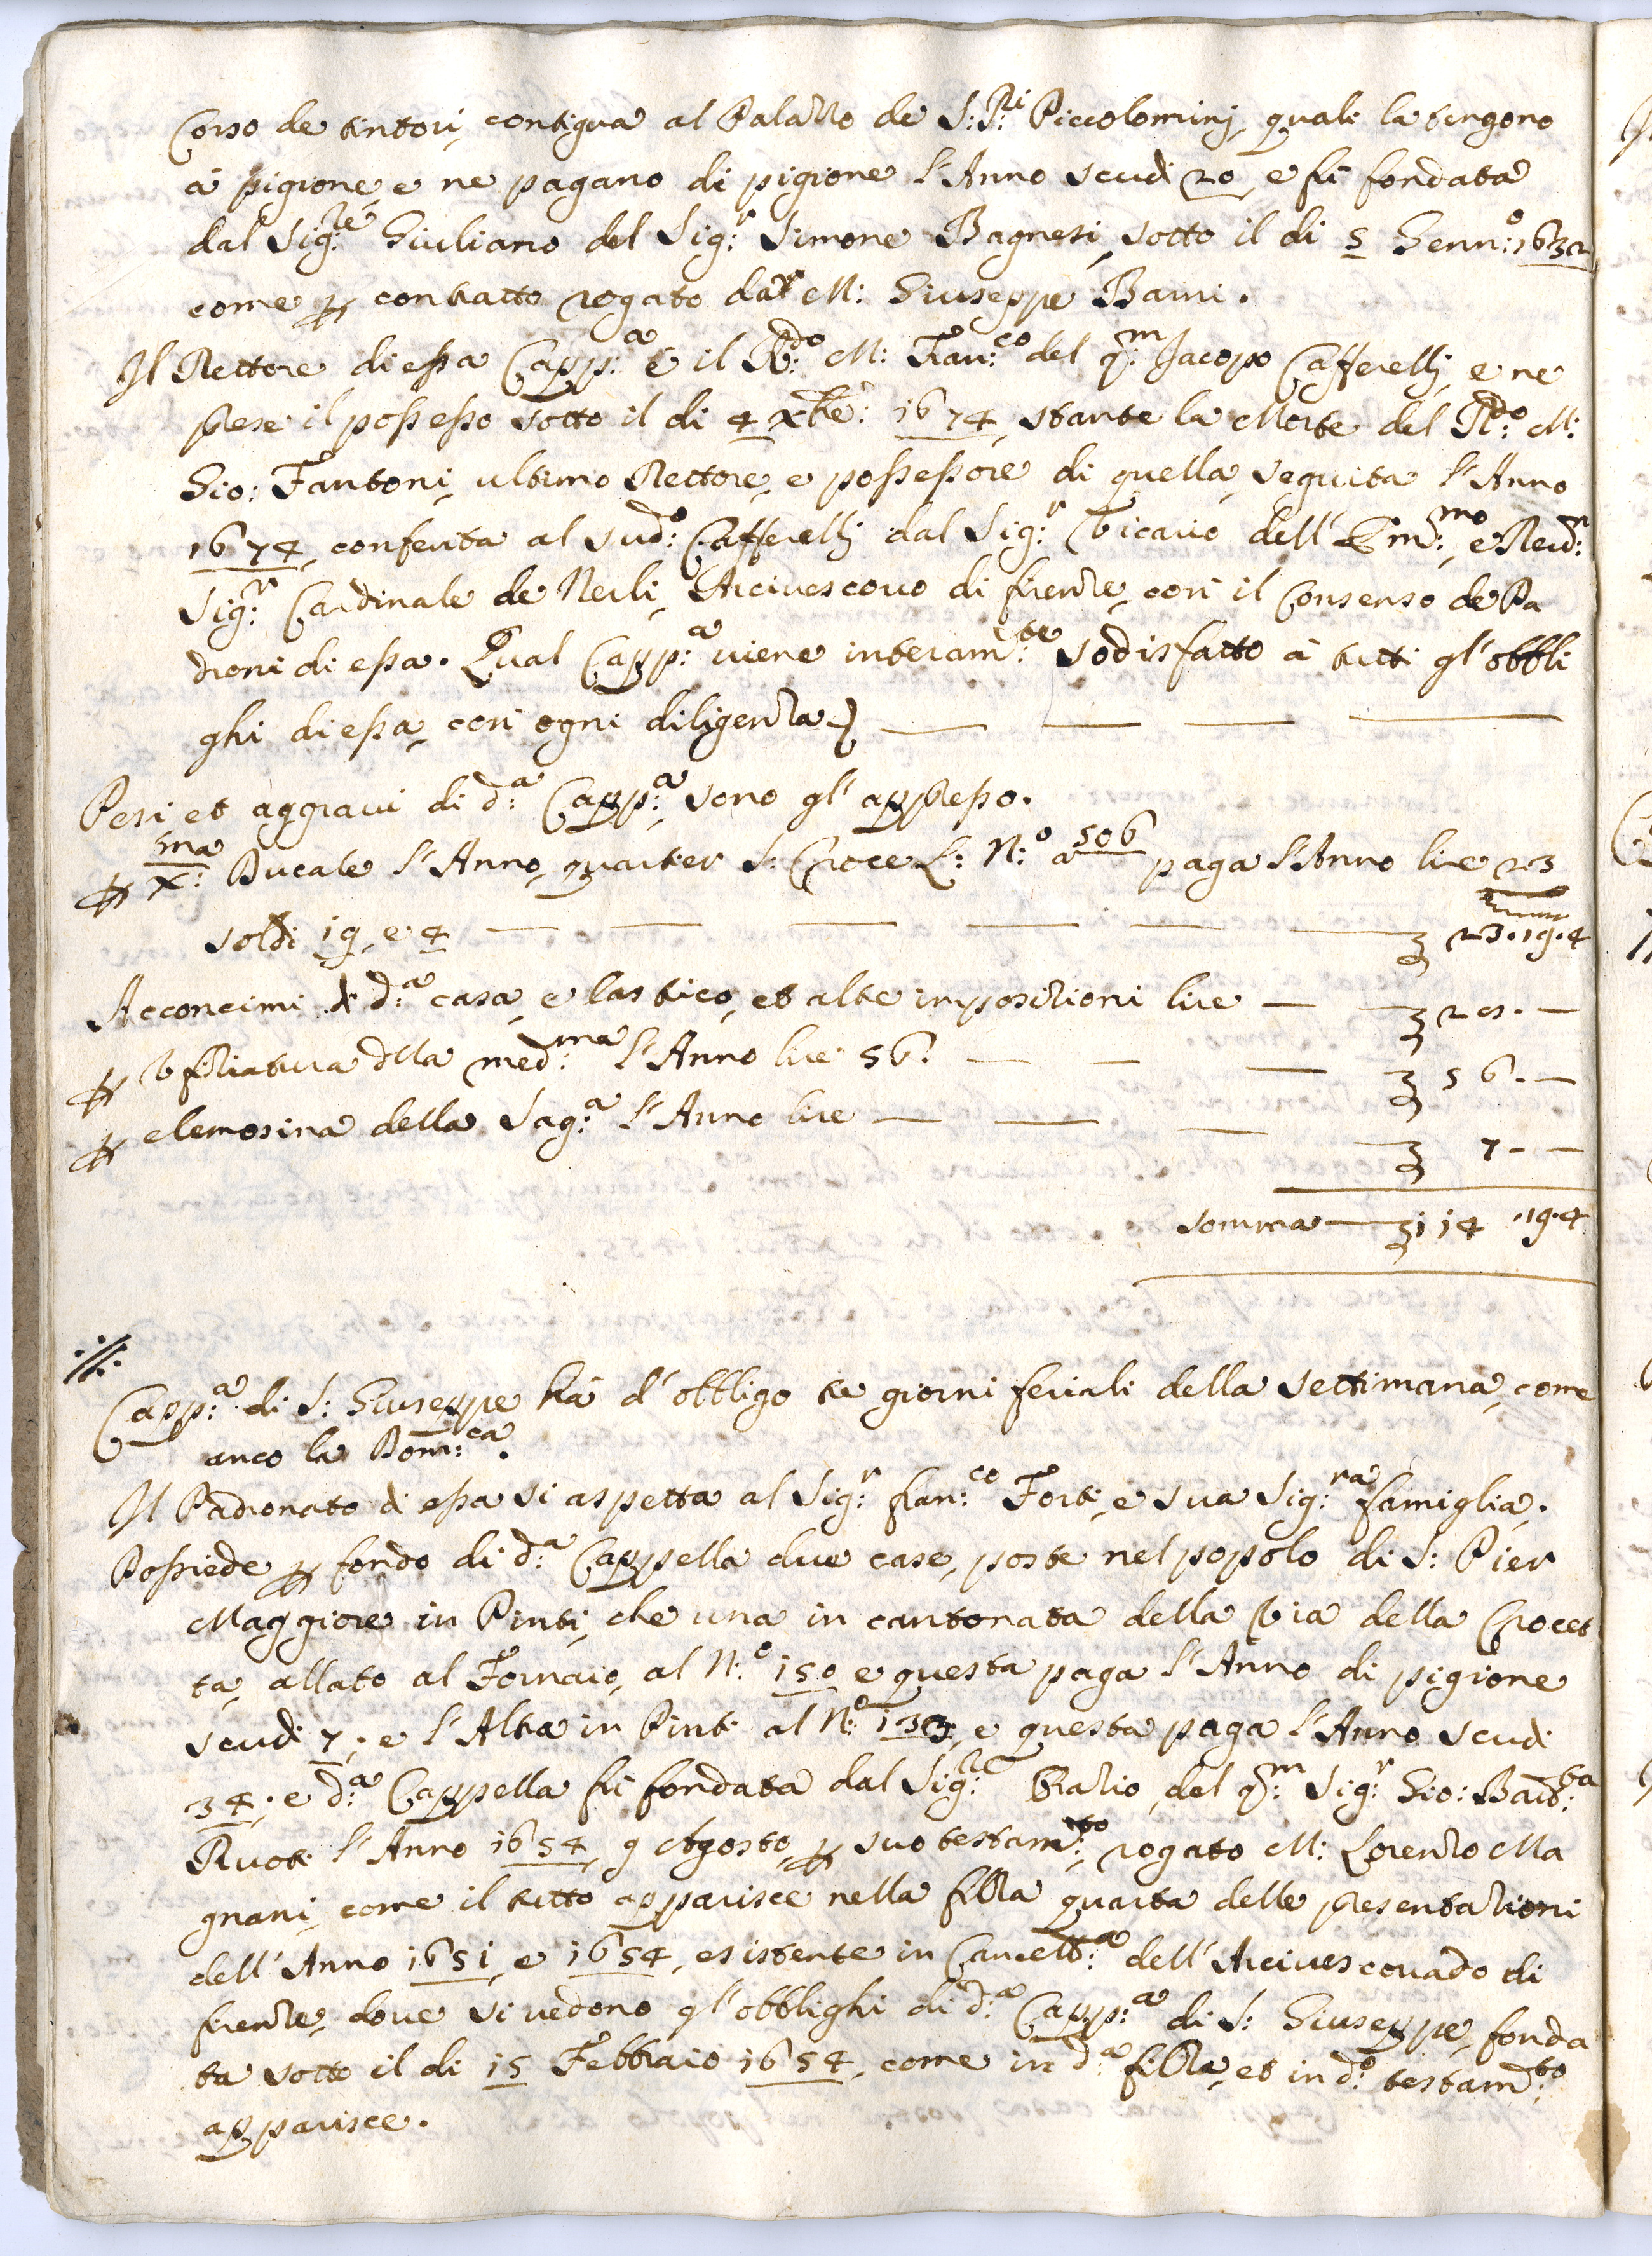 Corso de tintori, contigua al Palazzo de S:Ri Piccolominj, quali la tengono
à pigione, e ne pagano di pigione l'Anno scudi 20, e fù fondata
dal Sig:re Giuliano del Sig:r Simone Bagnesi, sotto il di 5 Genn:o 1632
come p contratto rogato da M: Giuseppe Barni.
Il Rettore di essa Capp:a è il R:do M: Fran:co del q:m Jacopo Cafferellj, e ne
prese il possesso sotto il di 4 Xbre: 1674, stante la Morte del R:do M:
Gio: Fantoni, ultimo Rettore, e possessore di quella, seguita l'Anno
1674, conferita al sud:o Cafferellj dal Sig:r Vicario dell'Em:mo, e Reud:
Sig:r Cardinale de Nerli, Arciuescouo di firenze, con il Consenso de Pa
droni di essa. Qual Capp:a uiene interam:te sodisfatto à tutti gl'obbli
ghi di essa, con ogni diligenza
Pesi et aggraui di d:a Capp:a sono gl'appresso.
p X:ma Ducale l'Anno, quartier S: Croce L: N:o a 506 paga l'Anno lire 23
soldi 19, e 4 — 23.19.4
Acconcimi di d:a casa, e lastico, et altre imposizioni lire — 28. —
p Vfiziatura dlla med:ma l'Anno lire 56. — 56. —
p elemosina della Sag:a l'Anno lire — 7 - —
somma — 114 .19.4
Capp:a di S: Giuseppe hà d'obbligo tre giorni feriali della settimana, come
anco la Dom:ca.
Il Padronato di essa si aspetta al Sig:r fran:co Forti, e sua Sig:ra famiglia.
Possiede p fondo di d:a Cappella due case, poste nel popolo di S: Pier
Maggiore in Pinti, che una in cantonata della Via della Crocet
ta, allato al Fornaio, al N:o 150 e questa paga l'Anno di pigione
scudi 7; e l'Altra in Pinti al N:o 133, e questa paga l'Anno scudi
34; e d:a Cappella fù fondata dal Sig:re Orazio, del q:m Sig:r Gio: Batt:ta
Ruoti l'Anno 1654, 9 Agosto, p suo testam:to rogato M: Lorenzo Ma
gnani, come il tutto apparisce nella filza quarta delle presentazioni
dell'Anno 1651, e 1654, esistente in Cancell:a dell'Arciuescouado di
firenze, dove si uedono gl'obblighi di d:a Capp:a di S: Giuseppe, fonda
ta sotto il di 15 Febbraio 1654, come in d:a filza, et in d:o testam:to
apparisce.